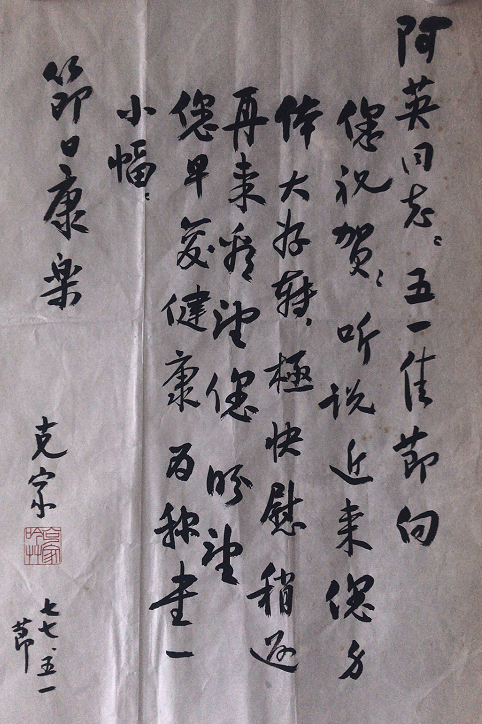 阿英同志：五一佳節向
您祝贺；听说近来您身
体大好转，極快慰稍迟
再来看望您盼望
您早发健康为我画一
小幅。
節日康樂
克家
七七、五一
節